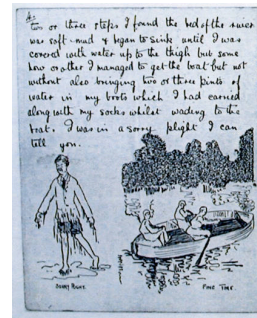 two or three steps I found the bed of the river
was soft mud & began to sink until I was
covered with water up to the thigh but some
how or other I managed to get the boat but not
without also bringing two or three pints of
water in my boots which I had carried
along with my socks whilst wading to the
boat. I was in a sorry plight I can
tell you.
SORRY PLIGHT.
FINE TIME.